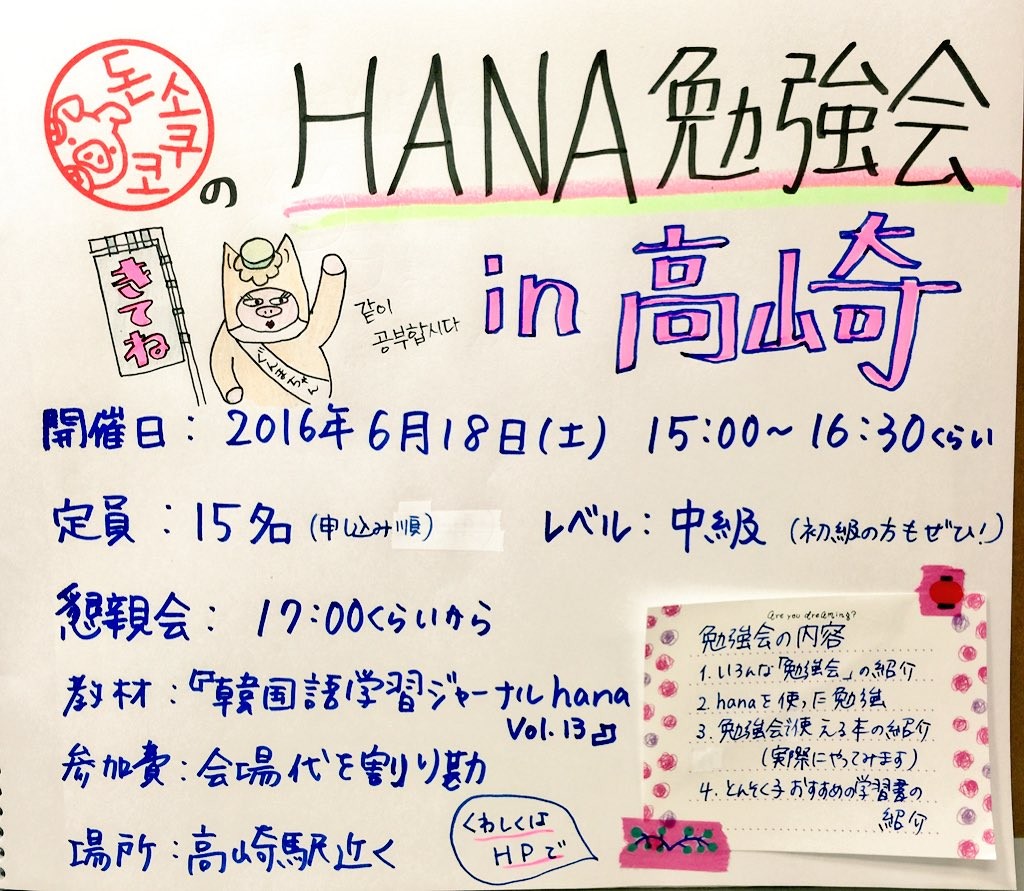 돈소쿠코
の
HANA勉強会
in 高崎
きてね
ぐんまちゃん
같이
공부합시다
開催日：2016年6月18日(土) 15:00～16:30くらい
定員：15名(申し込み順)
レベル：中級(初級の方もぜひ!)
懇親会：17:00くらいから
教材：『韓国語学習ジャーナルhana
Vol.13』
参加費：会場代を割り勘
場所：高崎駅近く
くわしくは
HPで
Are you dreaming?
勉強会の内容
1.いろんな「勉強会」の紹介
2.hanaを使った勉強
3.勉強会で使える本の紹介
(実際にやってみます)
4.とんそく子おすすめの学習書の
紹介